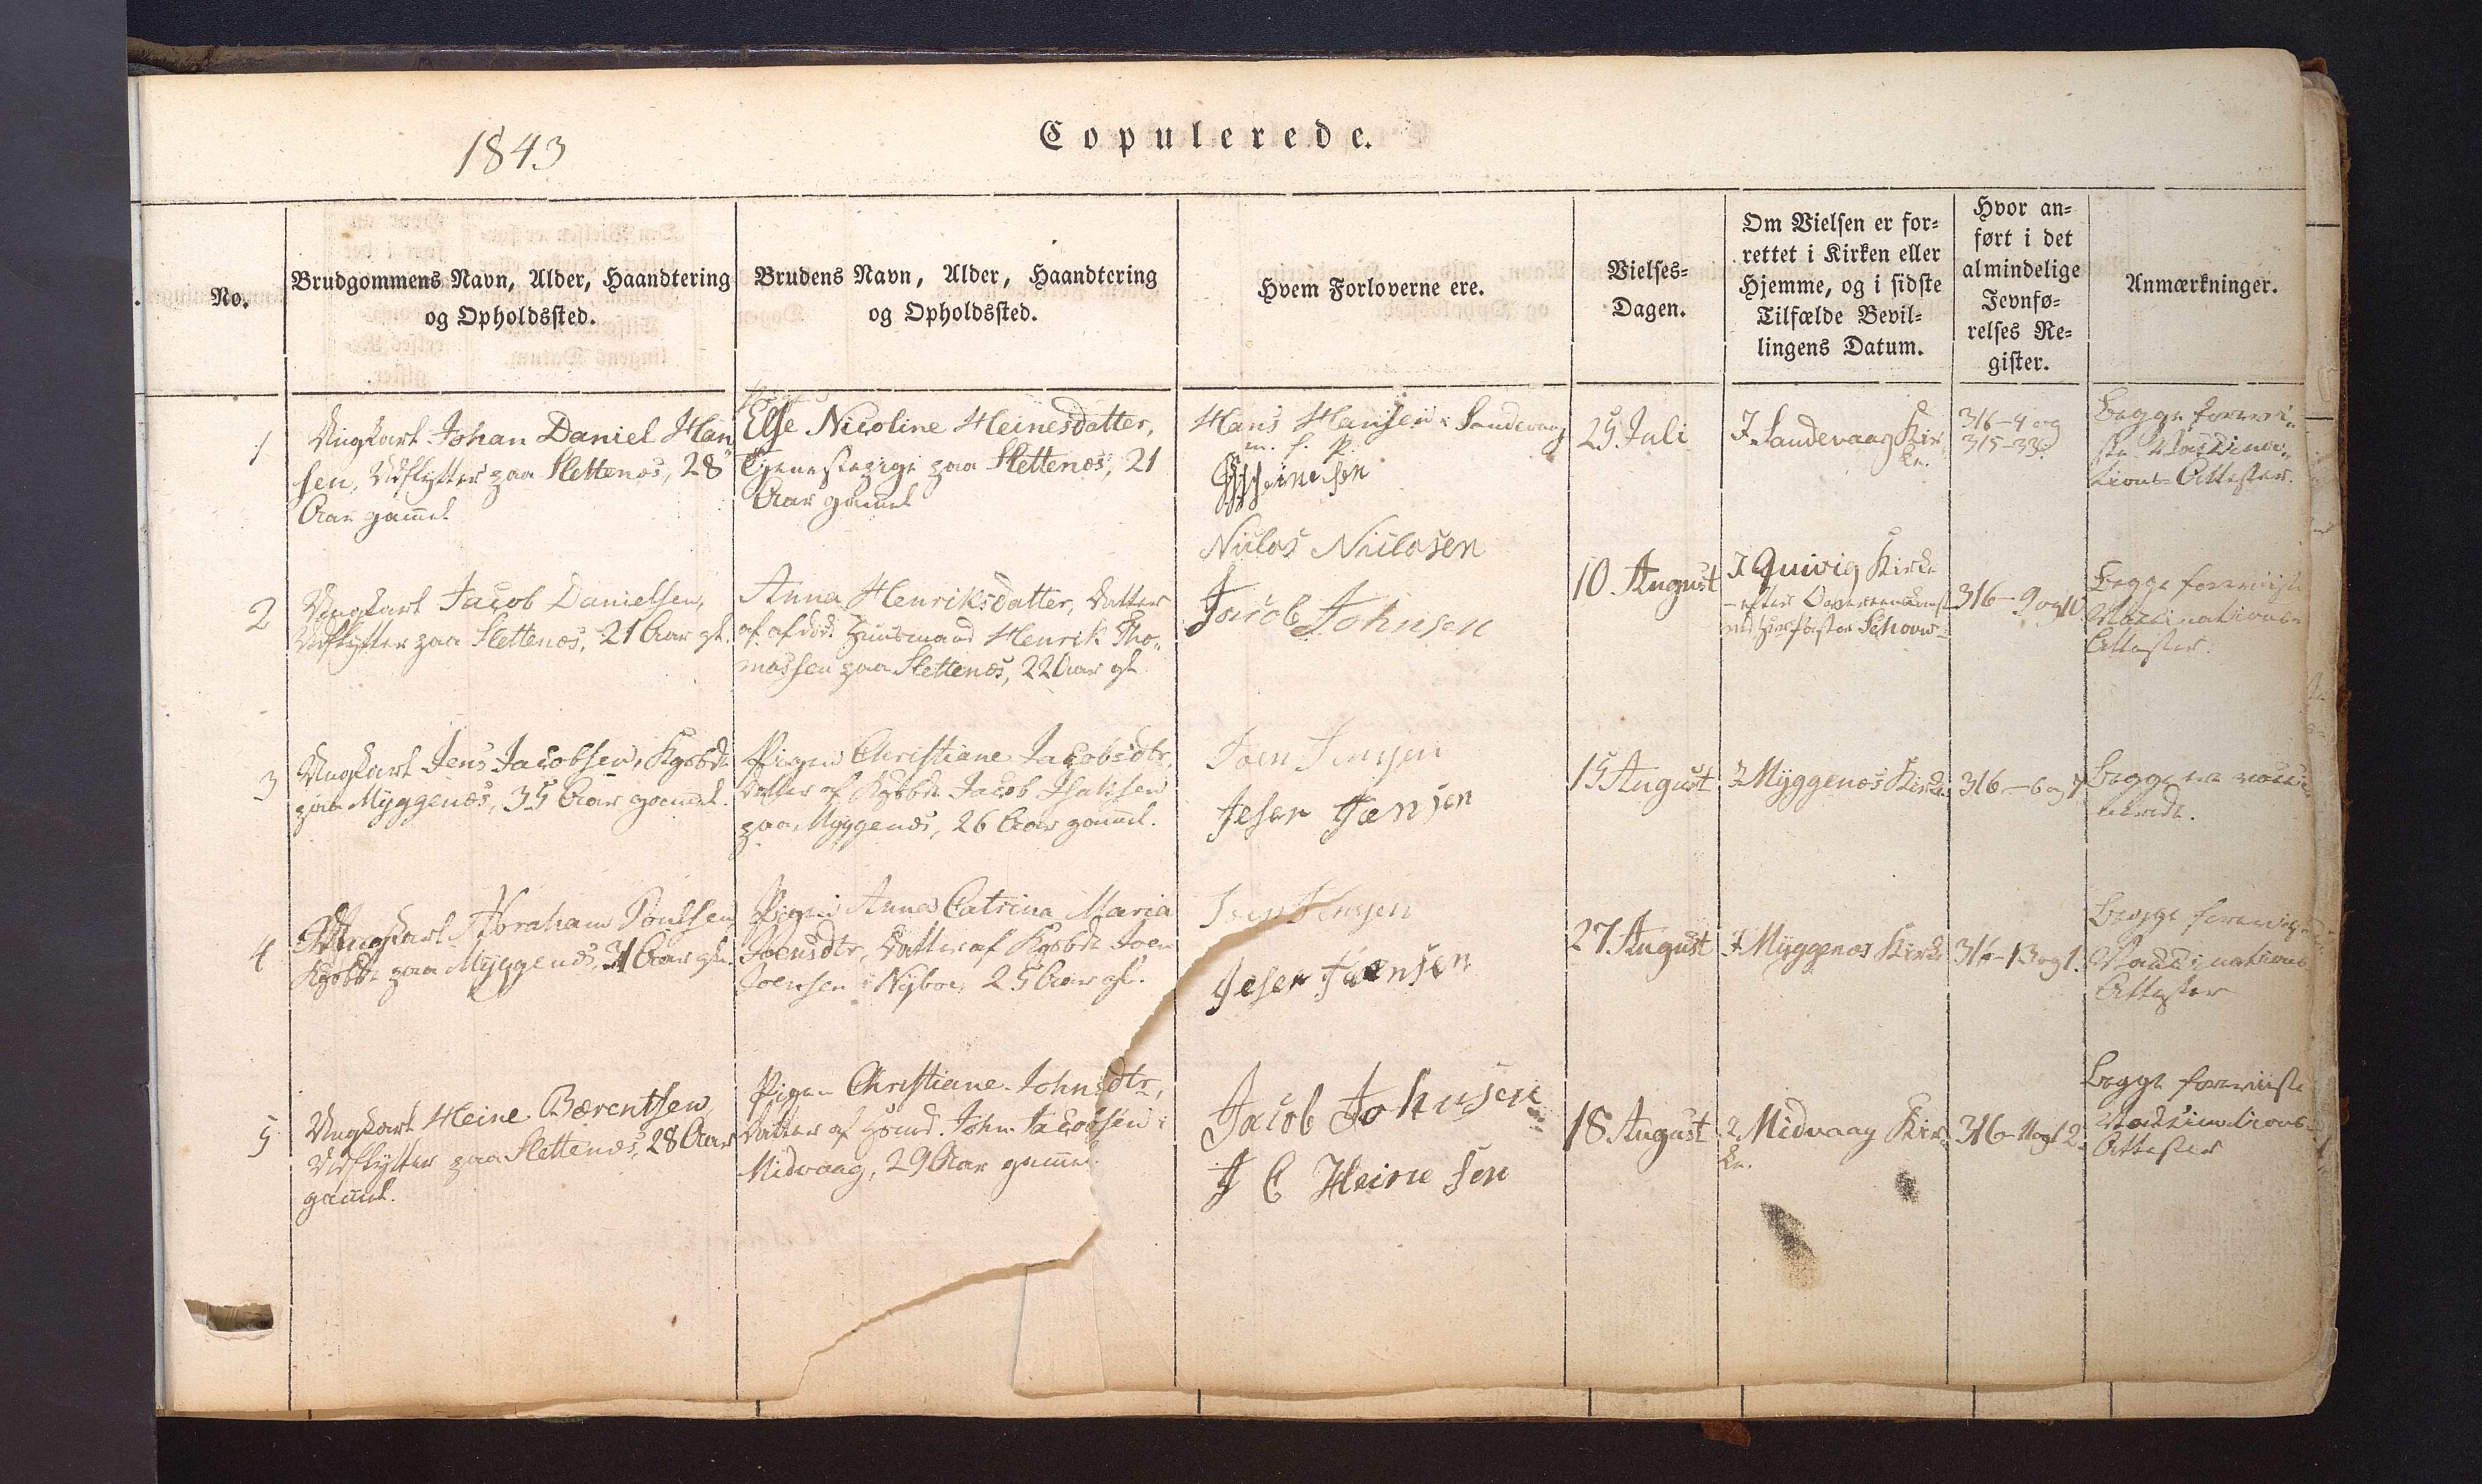 1843
Copulerede.
No.
Brudgommens Navn, Alder, Haandtering
og Opholdssted.
Brudens Navn, Alder, Haandtering
og Opholdssted.
Hvem Forloverne ere.
Vielses-
Dagen.
Om Vielsen er for-
rettet i Kirken eller
Hjemme, og i sidste
Tilfælde Bevil-
lingens Datum.
Hvor an-
ført i det
almindelige
Jevnfø-
relses Re-
gister.
Anmærkninger.
1
Ungkarl Johan Daniel Han
sen, Udflytter paa Slettenæs, 28
Aar gam̄el
Else Nicoline Heinesdatter,
Tjenestepige paa Slettenæs, 21
Aar gam̄el
Hans Hansen i Sandevaag
m. f. P.
25 Juli
I Sandevaag Kir
ke.
316-4 og
315-33.
Begge forevii-
ste Vaccina-
tions-Attester.
2
Ungkarl Jacob Danielsen,
Udflytter paa Slettenæs, 21 Aar gl.
Anna Henriksdatter, Datter
af afdøde Huusmand Henrik Tho-
massen paa Slettenæs, 22 Aar gl
Niclas Niclasen
Jacob Johnsen
10 August
I Qvivig Kirke
-efter Overeenkomst
med Hr. Pastor Schow-
316-9 og 10
Begge foreviiste
Vaccinations-
Attester.
3
Ungkarl Jens Jacobsen, Kgsbde
paa Myggenæs, 35 Aar gam̄el.
Pigen Christiane Jacobsdtr,
Datter af Kgsbde Jacob Isaksen
paa Myggenæs, 26 Aar gam̄el.
Joen Jensen
15 August
I Myggenæs Kirke
316-6 og 7
Begge ere vacci-
nerede.
4
Ungkarl Abraham Poulsen
Kgsbde paa Myggenæs, 31 Aar gl.
Pigen Anna Catrina Maria
Joensdtr, Datter af Kgsbde Joen
Joensen i Nyboe, 25 Aar gl.
Joen Jensen
27 August
I Myggenæs Kirke
Begge foreviiste
Vaccinations-
Attester
5
Ungkarl Heine Bærentsen
Udflytter paa Slettenæs, 28 Aar
gam̄el.
Pigen Christiane Johnsdtr,
Datter af Huusmd. John Jacobsen i
Midvaag, 29 Aar gam̄el.
Jacob Johnsen
J C Heinesen
18 August
I Midvaag Kir-
ke.
316-11 og 12
Begge foreviiste
Vaccinations-
Attester